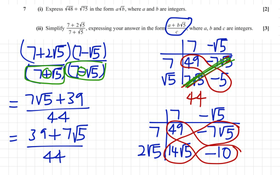 7 (i) Express √48 + √75 in the form a√b, where a and b are integers. [2]
(ii) Simplify (7 + 2√5)/(7 + √5), expressing your answer in the form (a + b√5)/c, where a, b and c are integers. [3]
(7+2√5)(7-√5)
(7+√5)(7-√5)
= 7√5 + 39
44
= 39 + 7√5
44
7 -√5
7 49 -7√5
√5 7√5 -5
44
7 -√5
7 49 -7√5
2√5 14√5 -10